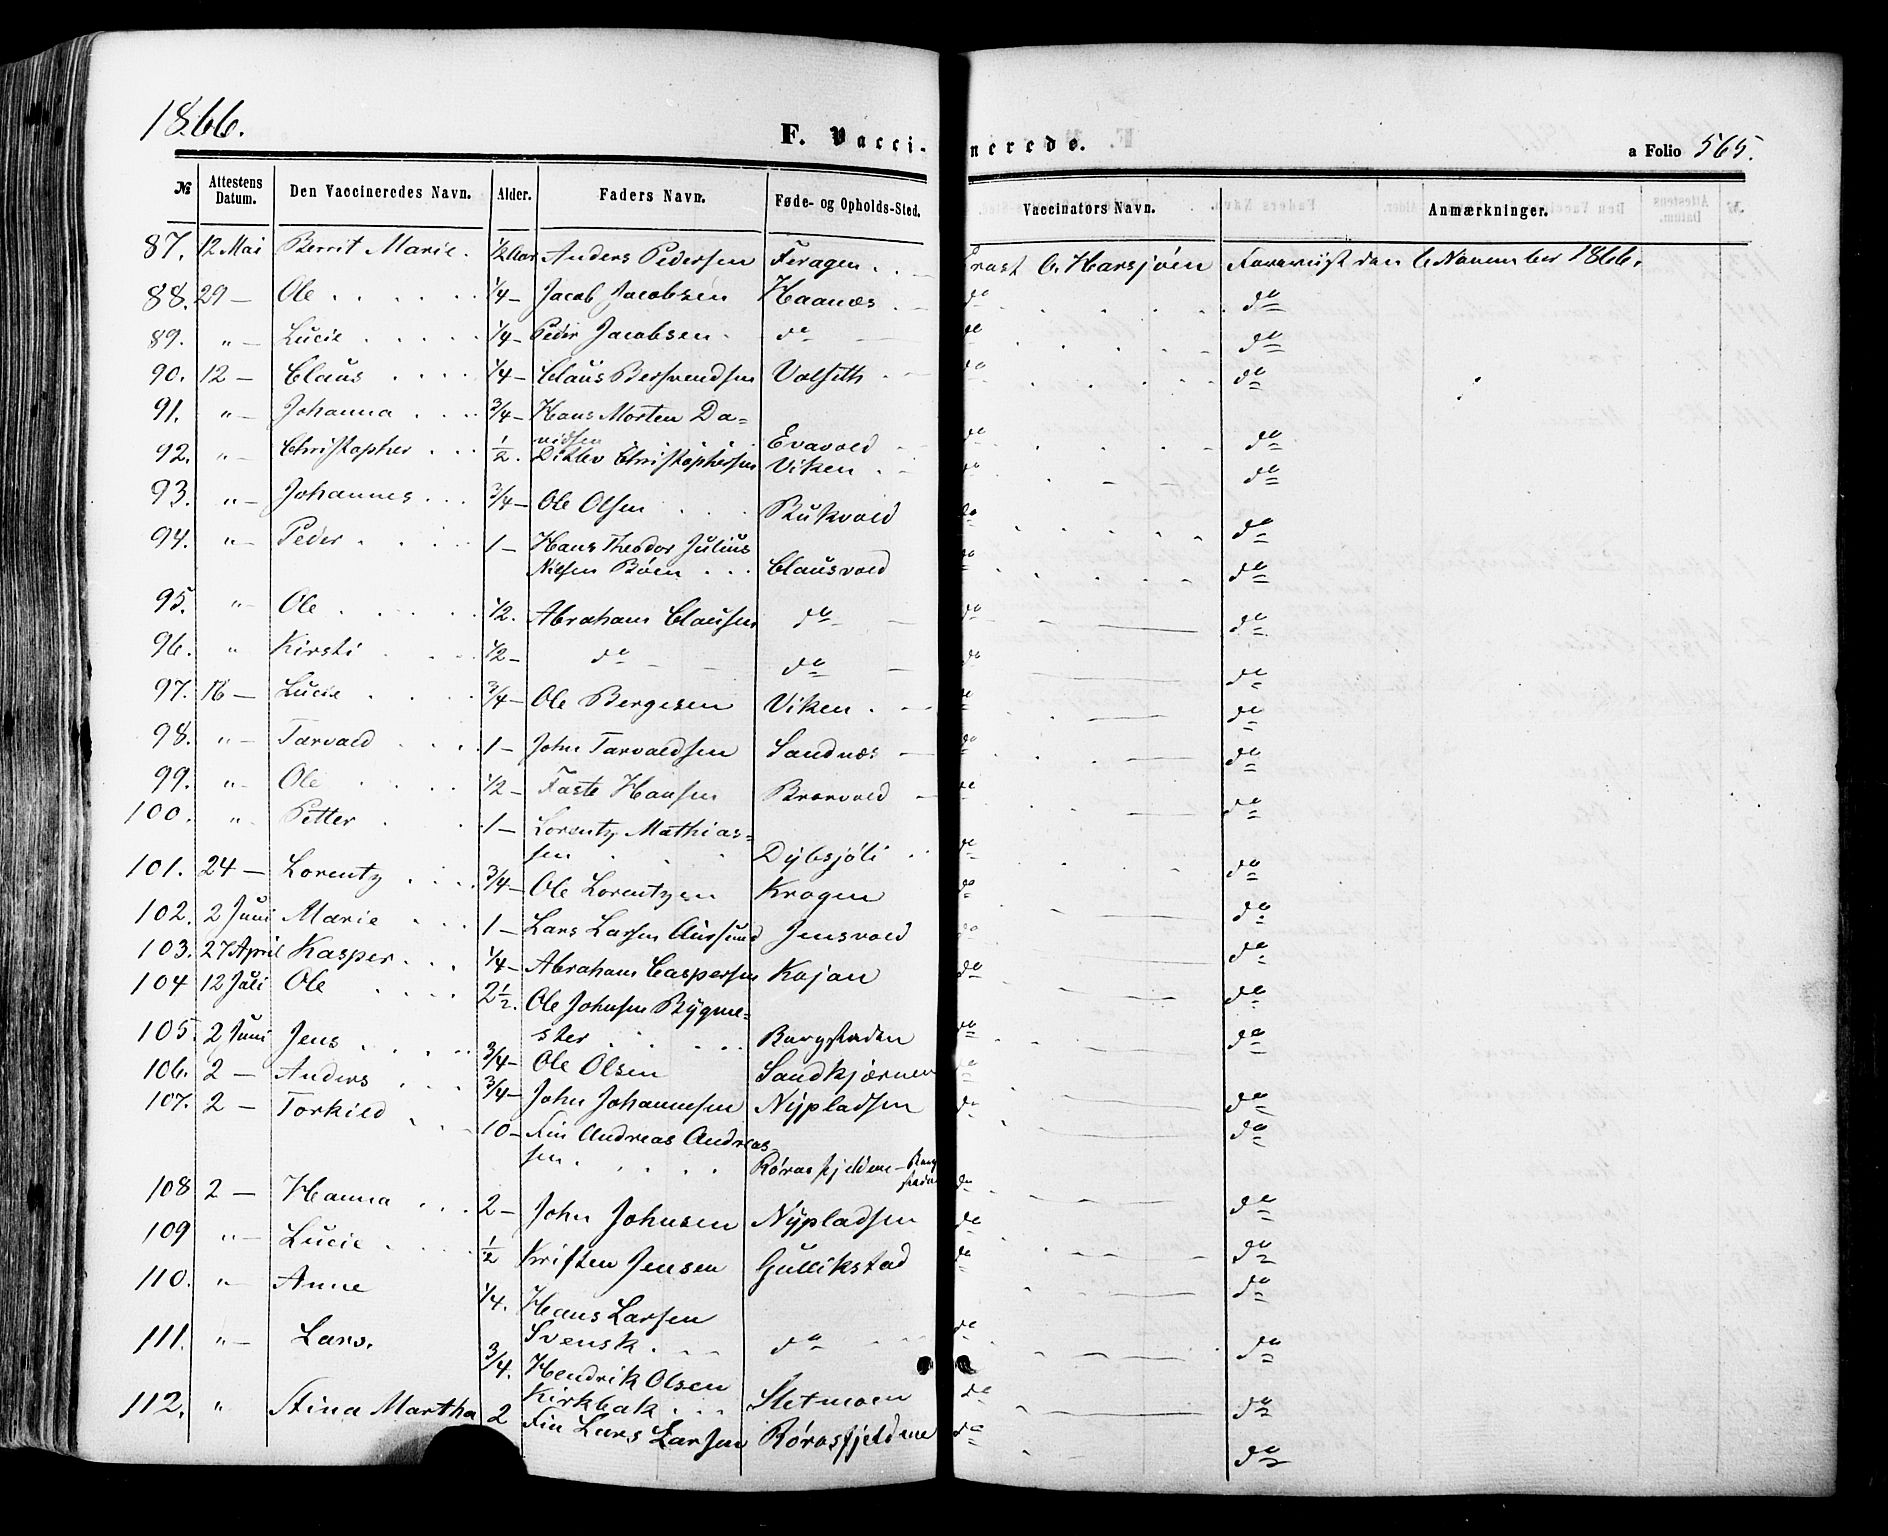 1866.
F. Vaccinerede.
a Folio 565.
№ Attestens Datum. Den Vaccineredes Navn. Alder. Faders Navn. Føde- og Opholds-Sted. Vaccinators Navn. Anmærkninger.
87. 12 Mai Berrit Marie. 1/2 Aar Anders Pedersen Feragen . . — O. Harsjøen Foreviist den 6 November 1866.
88. 29 — Ole . . . . . 1/4 — Jacob Jacobsen Haanæs . — do do
89. " — Lucie . . . . 1/4 — Peder Jacobsen . do — do do
90. 12 — Claus . . . . 1/4 — Claus Bersvendsen Valseth . — do do
91. " — Johanna . . . 3/4 — Hans Morten Da=
vidsen Evavold — do do
92. " — Christopher . . . 1/2 . Ditlev Christophersen Viken . — do do
93. " — Johannes . . . 3/4 — Ole Olsen . . . Rukvold do do
94. " — Peder . . . . 1 — Hans Theodor Julius
Nilsen Bøen . . . Clausvold do do
95. " — Ole . . . . . 1/2 . Abraham Clausen do — do do
96. " Kirsti . . . . 1/2 — do — — do — do do
97. 16 — Lucie . . . . 3/4 — Ole Bergesen Viken . — do do
98. " — Tarvald . . . . 1 — John Tarvaldsen Sandnæs — do do
99. " — Ole . . . . 1/2 — Faste Hansen Brovold — do do
100. " . Petter . . . 1 — Lorentz Mathias=
sen . . . Dybsjøli . . do do
101. 24 — Lorentz . . . . 3/4 — Ole Lorentzen Krogen do do
102. 2 Juni Marie . . . 1 — Lars Larsen Aursund Jensvold do do
103. 27 April Kasper . . . 1/4 — Abraham Caspersen Kojan do do
104 12 Juli Ole . . . . 2 1/2 . Ole Johnsen Bygme=
ster . . . . . Bergstaden do do
105. 2 Juni Jens . . . . . 3/4 — Ole Olsen Sandkjærnen do
106. 2 — Anders . . . 3/4 — John Johannesen Nypladsen do do
107. 2 — Torkild . . . 10 — Andreas Andreas
sen . . . . . Rørosfjeldene — Berg
staden do do
108 2 — Hanna . . . 2 — John Johnsen Nypladsen do do
109 " — Lucie . . . . 1/2 Kristen Jensen Gullikstad do do
110. " — Anne 1/4 . Hans Larsen
Svensk . . . do . . . do do
111. " — Lars. 3/4 . Hendrik Olsen
Kirkbak . . . Sletmoen do do
112. " Stina Martha 2 Lars Larsen Rørosfjeldene do do